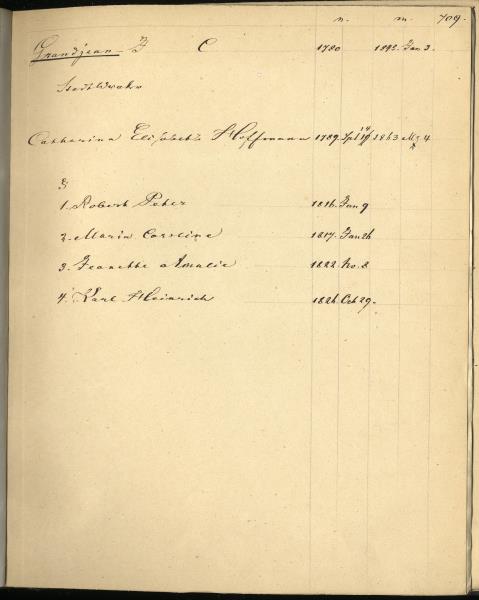 n. m. 709.
Grandjean – F C 1780 1845. Jan 3.
Catharina Elisabeth Hoffmann 1789. Spt 14 1863 Mz 4
1. Robert Peter 1816. Jan 9
2. Maria Caroline 1817. Jan 26
3. Jeanette Amalie 1822. No. 8
4. Karl Heinrich 1826. Oct 29.